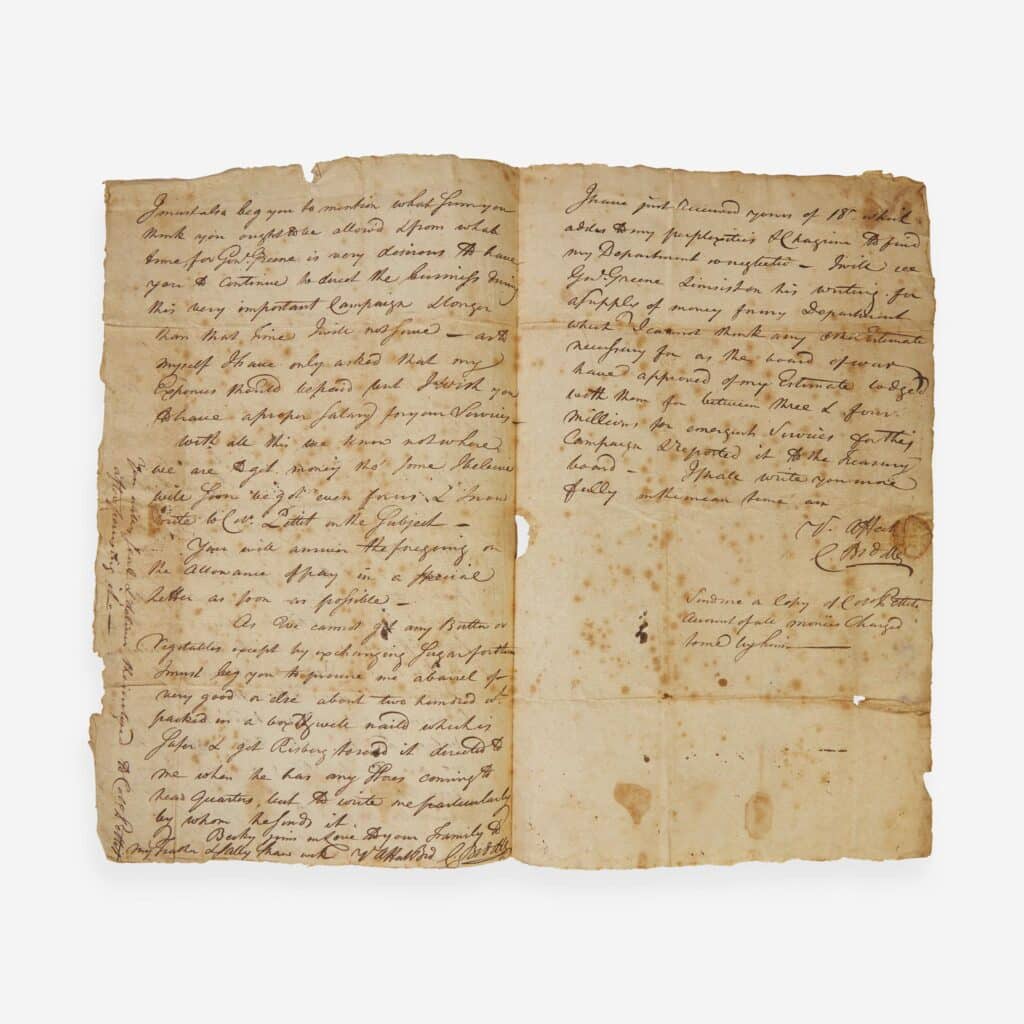 I must also beg you to mention what Sum you
think you ought to be allowd & from what
time for Genl. Greene is very desirous to have
you to Continue to direct the business during
this very important Campaign & longer
than that time I will not serve — as to
myself I have only asked that my
Expences should be paid but I wish you
to have a proper Salary for your Services
With all this we know not where
we are to get money tho' some I believe
will soon be got even for us & I now
write to Col. Pettit on the Subject —
You will answer the foregoing on
the Allowance of pay in a Special
letter as soon as possible —
As we cannot get any Butter or
Vegetables except by exchanging Sugar for them
I must beg you to procure me a barrel of
very good or else about two hundred wt.
packed in a box well naild which is
Safer & get Risberg to send it directed to
me when he has any Stores coming to
head Quarters, but to write me particularly
by whom he sends it.
Becky joins in Love to your Family to
my Father & Polly &
C Biddle
You will Seal & deliver the inclosed to Colo. Pettit
after
I have just received yours of 18th. which
adds to my perplexities & Chagrine to find
my Department so neglected — I will see
Genl. Greene & insist on his writing for
a Supply of money for my Department
which I cannot think any other Estimate
necessary for as the board of war
have approved of my Estimate lodged
with them for between three & four
Millions for emergent Services for this
Campaign & reported it to the Treasury
board — I shall write you more
fully in the mean time am
Yr. Affect
C Biddle
Send me a Copy of Colo. Pettits
Account of all monies Charged
to me by him —